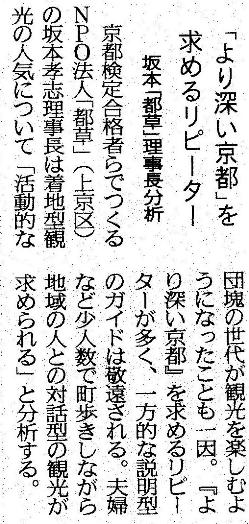 「より深い京都」を
求めるリピーター
坂本「都草」理事長分析
京都検定合格者らでつくる
NPO法人「都草」(上京区)
の坂本孝志理事長は着地型観
光の人気について「活動的な
団塊の世代が観光を楽しむよ
うになったことも一因。『よ
り深い京都』を求めるリピー
ターが多く、一方的な説明型
のガイドは敬遠される。夫婦
など少人数で町歩きしながら
地域の人との対話型の観光が
求められる」と分析する。